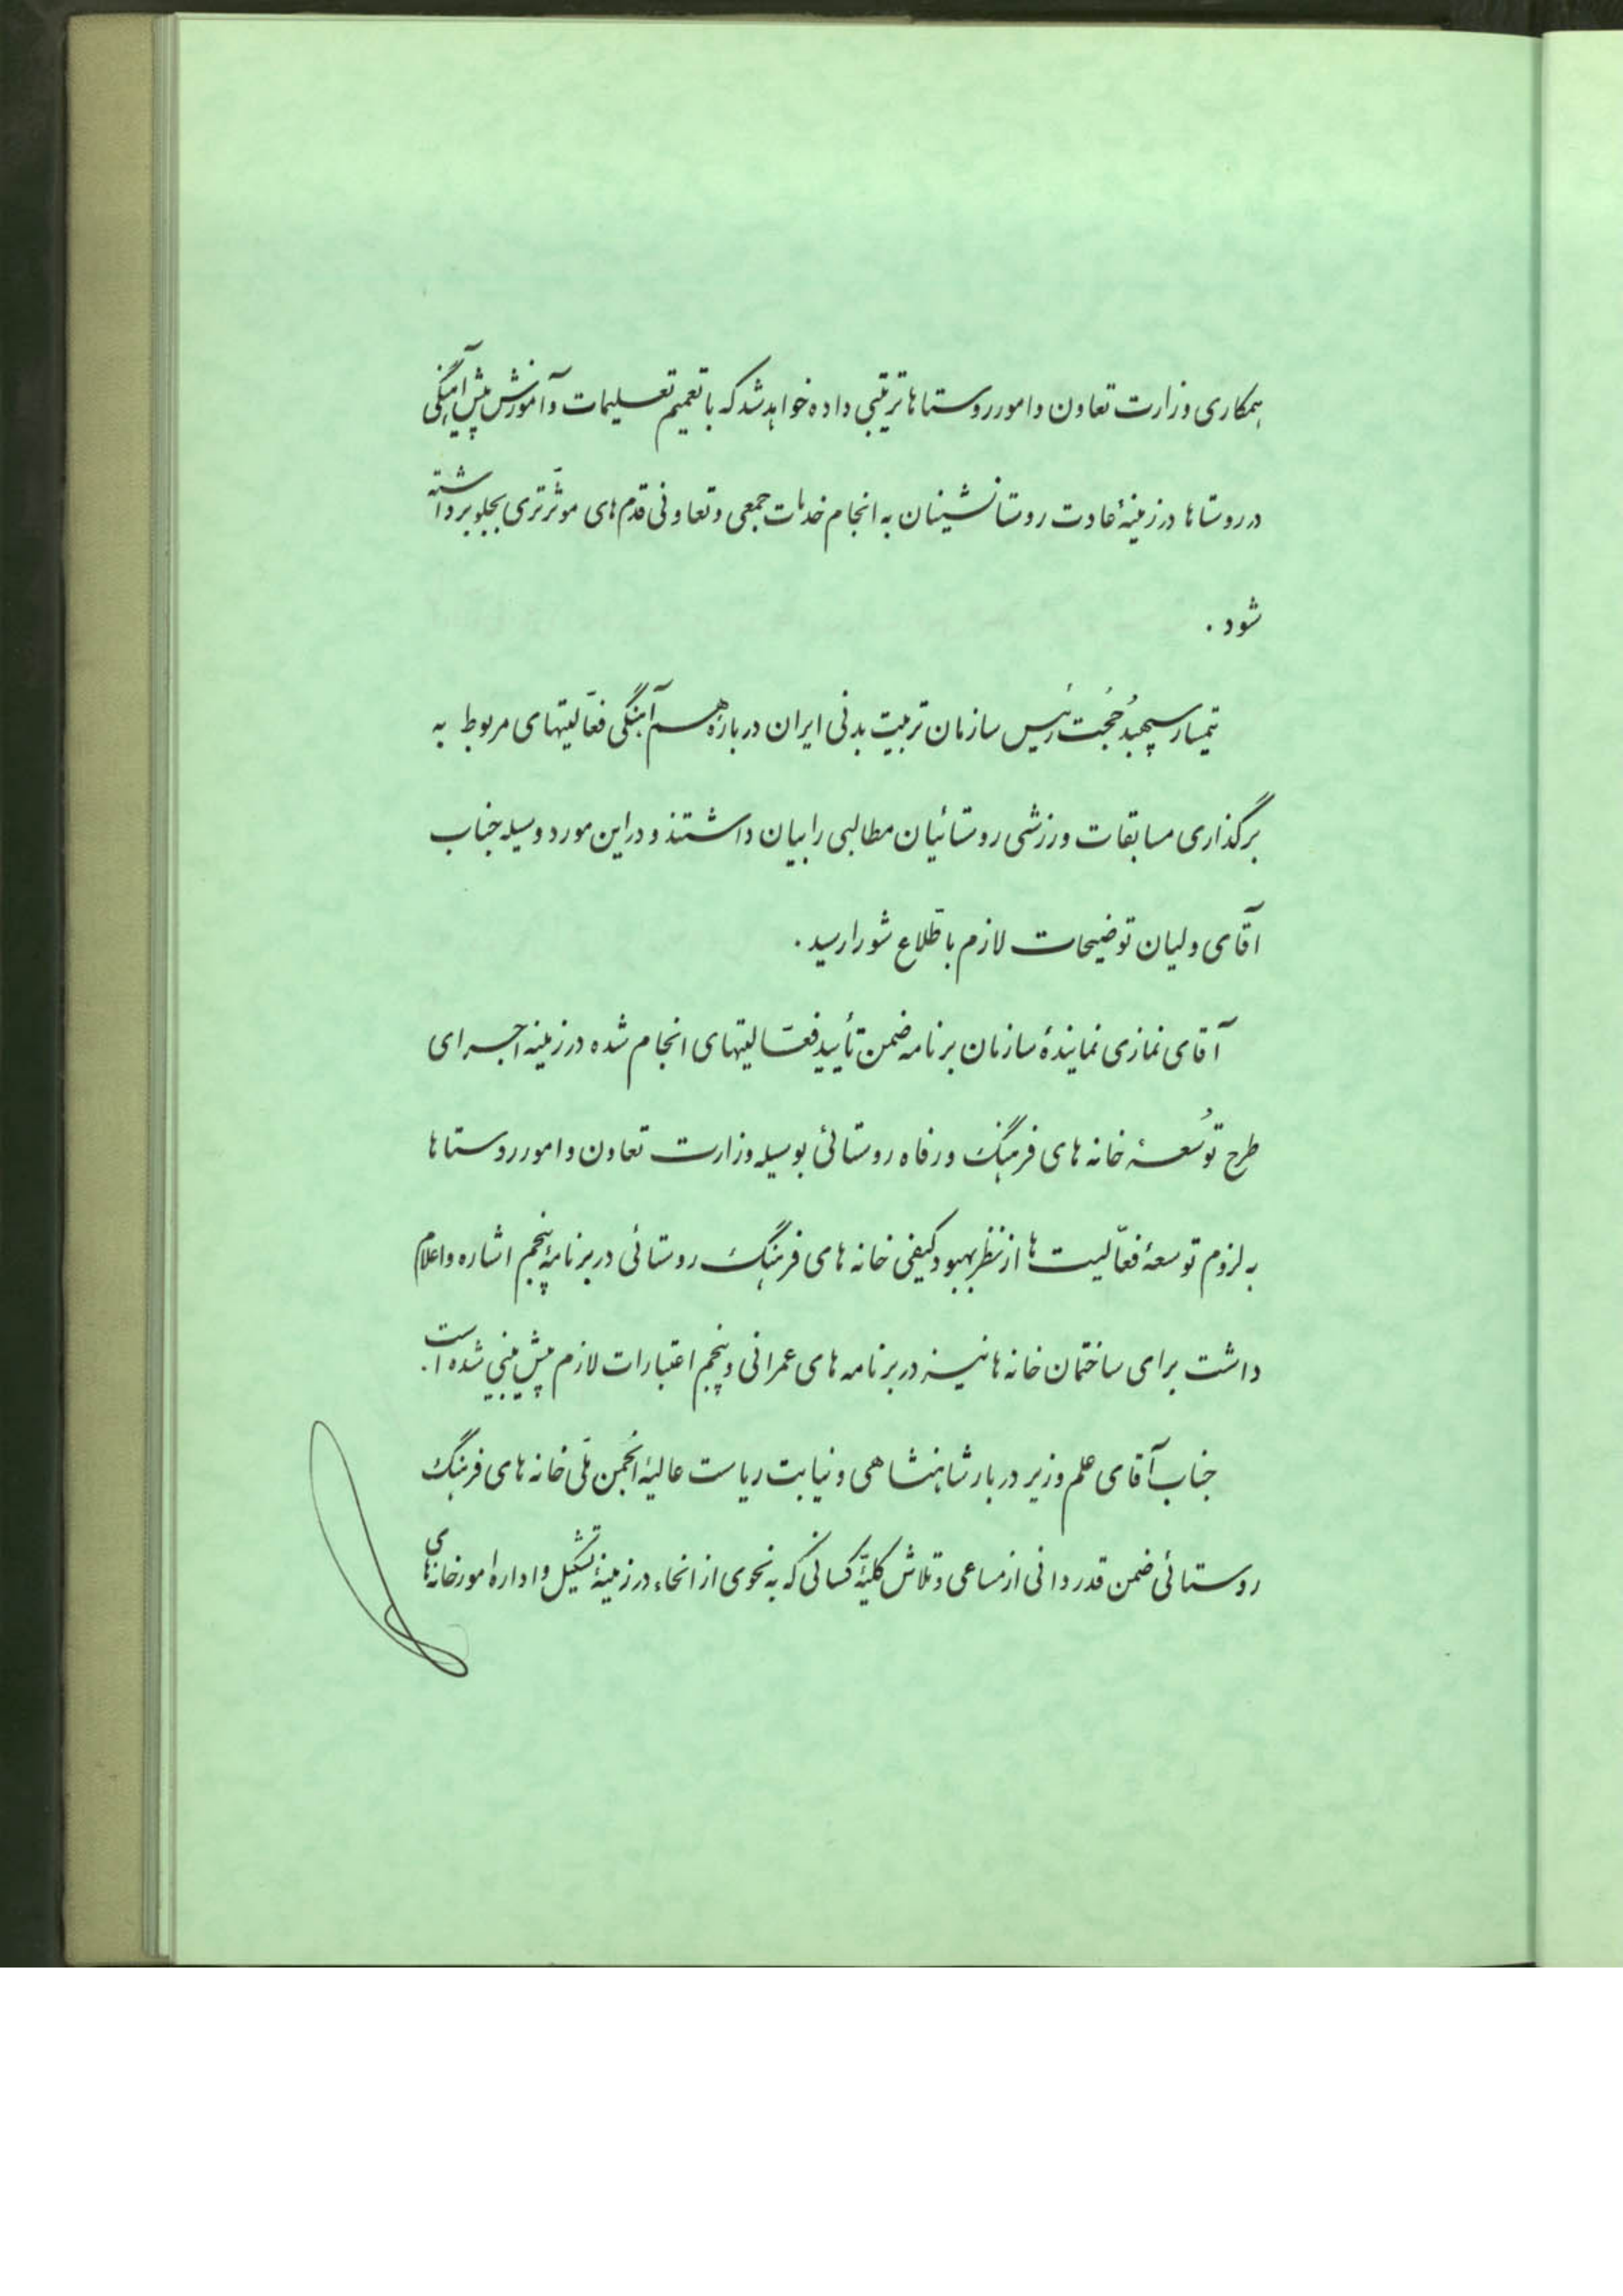 همکاری وزارت تعاون و امور روستاها ترتیبی داده خواهد شد که با تعمیم تعلیمات و آموزش پیش آهنگی
در روستاها در زمینهٔ عادت روستانشینان به انجام خدمات جمعی و تعاونی قدم‌های مؤثرتری بجلو برداشته
شود .
تیمسار سپهبد حُجت رئیس سازمان تربیت بدنی ایران دربارهٔ هم آهنگی فعّالیتهای مربوط به
برگذاری مسابقات ورزشی روستائیان مطالبی را بیان داشتند و در این مورد وسیله جناب
آقای ولیان توضیحات لازم باطّلاع شورا رسید .
آقای نمازی نمایندهٔ سازمان برنامه ضمن تأیید فعّالیتهای انجام شده در زمینه اجرای
طرح توُسعهٔ خانه های فرهنگ و رفاه روستائی بوسیله وزارت تعاون و امور روستاها
به لزوم توسعهٔ فعّالیت ها از نظر بهبود کیفی خانه های فرهنگ روستائی در برنامهٔ پنجم اشاره و اعلام
داشت برای ساختمان خانه ها نیز در برنامه های عمرانی و پنجم اعتبارات لازم پیش بینی شده است .
جناب آقای علم وزیر دربار شاهنشاهی و نیابت ریاست عالیهٔ انجُمن ملّی خانه های فرهنگ
روستائی ضمن قدردانی از مساعی و تلاش کلیّهٔ کسانی که به نحوی از انحاء در زمینهٔ تشکیل و اداره امور خانه‌های